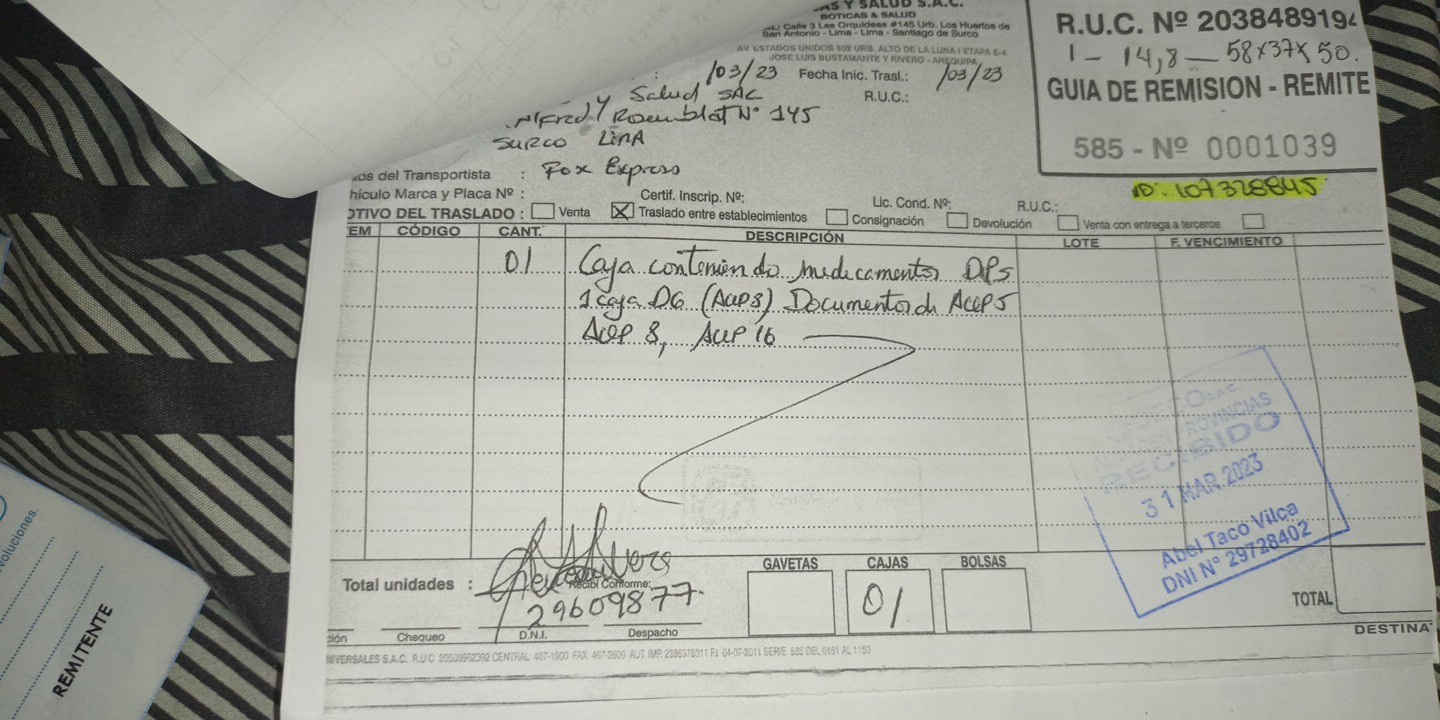 AS Y SALUD S.A.C.
BOTICAS & SALUD
Calle 3 Las Orquideas #145 Urb. Los Huertos de
San Antonio - Lima - Lima - Santiago de Surco
AV. ESTADOS UNIDOS 502 URB. ALTO DE LA LUNA I ETAPA E-4
JOSE LUIS BUSTAMANTE Y RIVERO - AREQUIPA
R.U.C. Nº 2038489194
1 - 14,8 — 58x37x50.
GUIA DE REMISION - REMITE
585 - Nº 0001039
ID: 107328845
: /03/23 Fecha Inic. Trasl.: /03/23
y Salud SAC R.U.C.:
Alfredy Rosemblat Nº 145
SURCO LIMA
os del Transportista : Fox Express
hículo Marca y Placa Nº : Certif. Inscrip. Nº: Lic. Cond. Nº: R.U.C.:
OTIVO DEL TRASLADO : Venta X Traslado entre establecimientos Consignación Devolución Venta con entrega a terceros
EM CÓDIGO CANT. DESCRIPCIÓN LOTE F. VENCIMIENTO
01 Caja conteniendo medicamentos DPs
1 caja DG (Acep 8) Documentos de Acep 5
Acep 8, Acep 16
RECIBIDO
31 MAR 2023
Abel Taco Vilca
DNI Nº 29728402
Total unidades :
Recibí Conforme:
29609877
ción Chequeo D.N.I. Despacho
GAVETAS CAJAS BOLSAS
01
TOTAL
DESTINA
NIVERSALES S.A.C. R.U.C 20508992392 CENTRAL: 467-1900 FAX 467-2600 AUT. IMP. 2396378011 F.I. 04-07-2011 SERIE 585 DEL 0151 AL 1150
voluciones.
REMITENTE